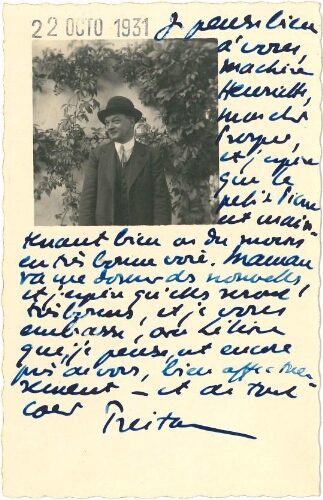 22 OCTO 1931
Je pense bien
à vous,
ma chère
Henriette,
mon cher
et j'espère
que le
petit
est main-
tenant bien ou du moins
en très bonne voie. Maman
va me donner des nouvelles
et j'espère qu'elles seront
très bonnes, et je vous
embrasse, avec
que, je pense, est encore
près de vous, bien affectueu-
sement — et de tout
coeur Tristan